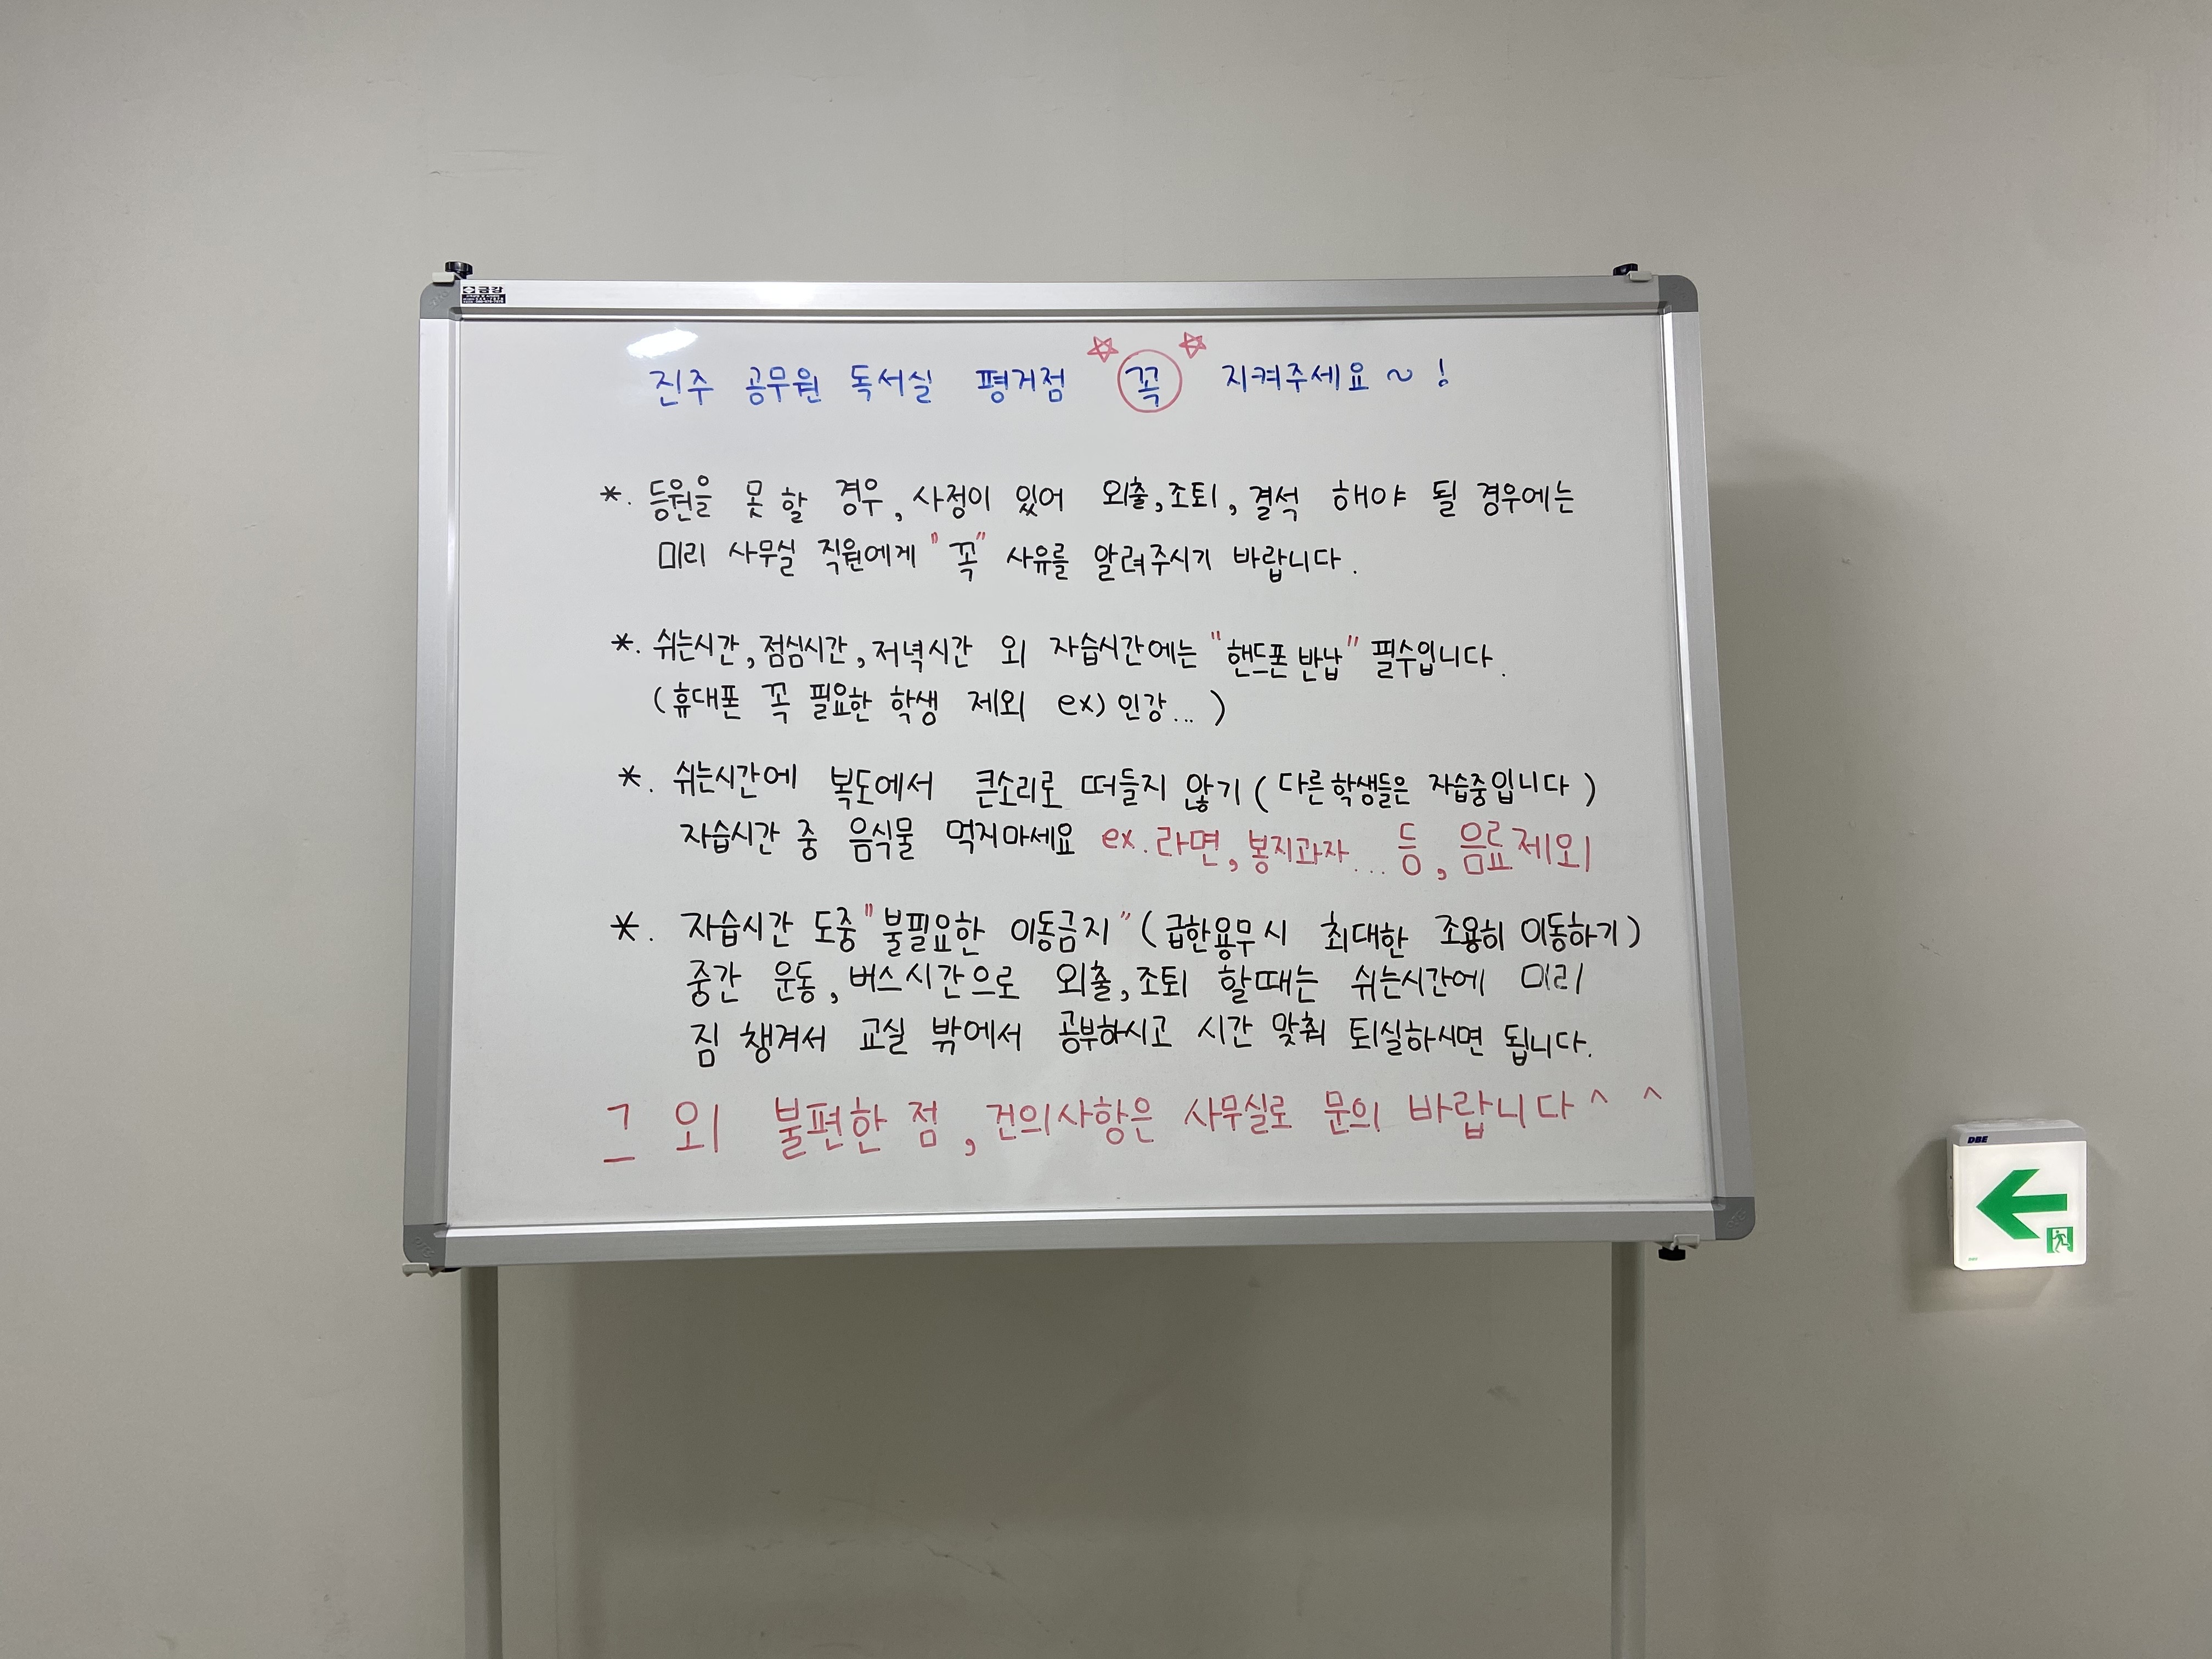 금강
진주 공무원 독서실 평거점 꼭 지켜주세요~!
*. 등원을 못 할 경우, 사정이 있어 외출, 조퇴, 결석 해야 될 경우에는
미리 사무실 직원에게 "꼭" 사유를 알려주시기 바랍니다.
*. 쉬는시간, 점심시간, 저녁시간 외 자습시간에는 "핸드폰 반납" 필수입니다.
(휴대폰 꼭 필요한 학생 제외 ex) 인강...)
*. 쉬는시간에 복도에서 큰소리로 떠들지 않기 (다른 학생들은 자습중입니다)
자습시간 중 음식물 먹지마세요 ex. 라면, 봉지과자... 등, 음료제외
*. 자습시간 도중 "불필요한 이동금지" (급한용무시 최대한 조용히 이동하기)
중간 운동, 버스시간으로 외출, 조퇴 할때는 쉬는시간에 미리
짐 챙겨서 교실 밖에서 공부하시고 시간 맞춰 퇴실하시면 됩니다.
그 외 불편한 점, 건의사항은 사무실로 문의 바랍니다^ ^
DBE